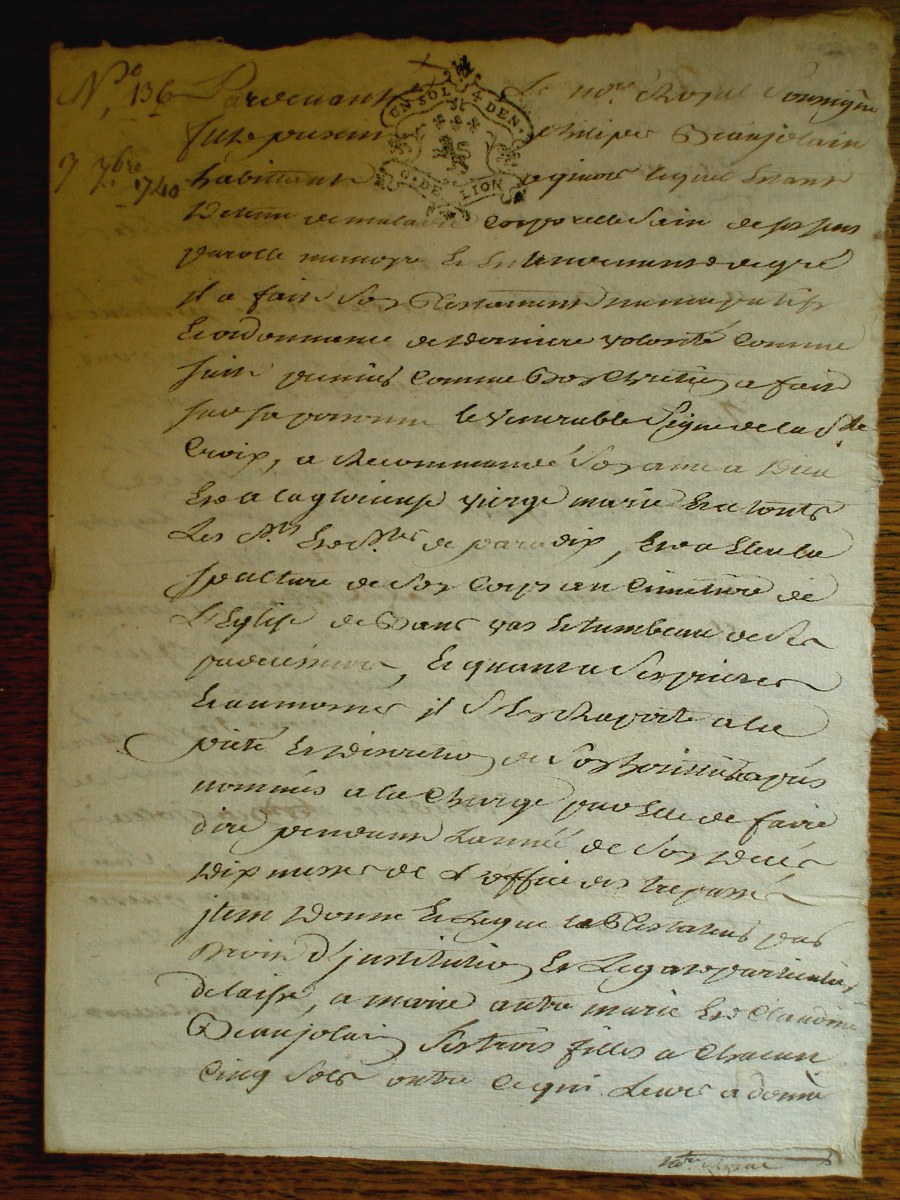 N° 136
7 7bre 1740
UN SOL 4 DEN.
G. DE LION
Pardevant Le no.re Royal soussigne
fut present philipes Beaujolain
habittant lequel Estant
Detenu de maladie Corporelle sain de ses sens
parolle memoyre Et Entendement de gré
il a fait son Testament nuncupatif
Et ordonnance de derniere volonté Comme
suit premier Comme Bon Chretien a fait
sur sa personne le venerable signe de la Ste
Croix, a Recommandé son ame a Dieu
Et a la glorieuse vierge marie Et a touts
Les Sts Et Stes de paradix, Et a Eleu la
sepulture de son Corps au Cimettiere de
L'Eglise de Bans vas Le tumbeau de ses
predecesseurs, Et quant a ses prieres
Et aumones il s'En Raporte a la
pieté Et discretion de son heritiere apres
nommée a la Charge par Elle de faire
dire pendant L'année de son Decés
Dix messes de L'office des trepassés
jtem Donne Et Legue le Testateur par
Droit d'institution Et Legat particulier
delaisse, a marie autre marie Et Claudine
Beaujolain ses trois filles a Chacun
Cinq sols outre Ce qui Leurs a donné